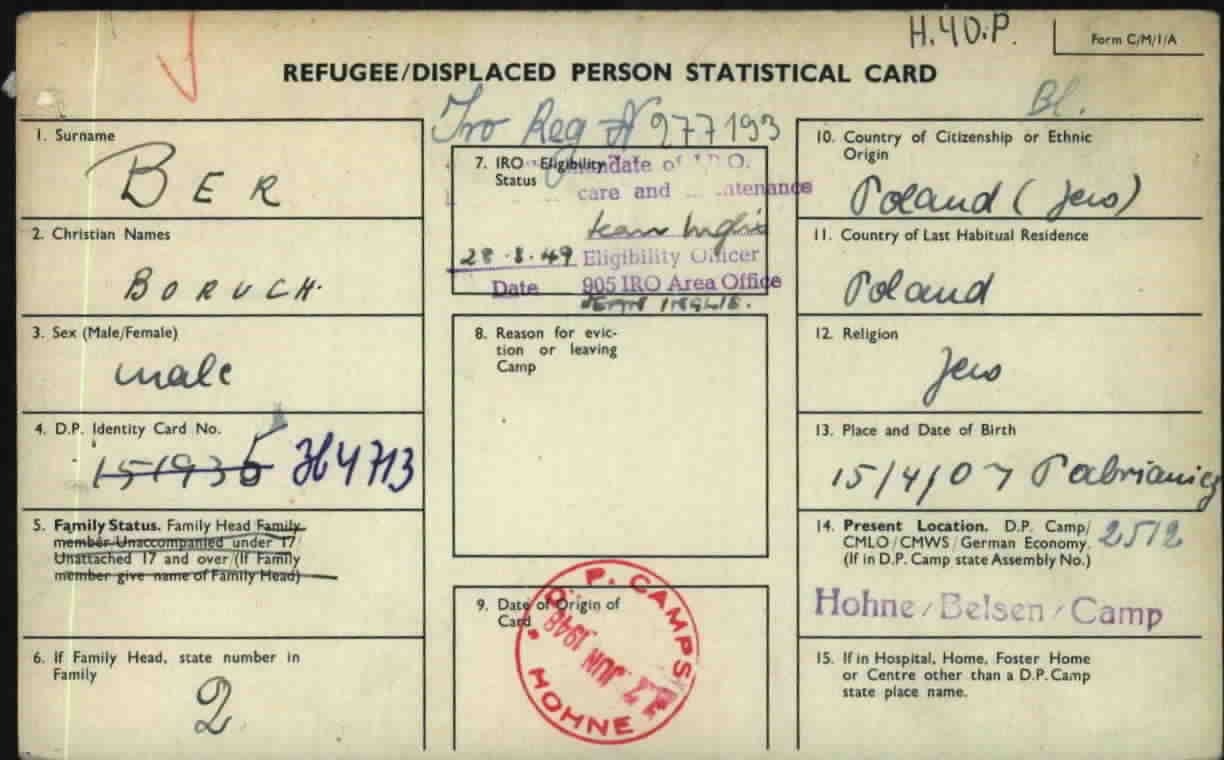 H.40.P.
Form C/M/1/A
REFUGEE/DISPLACED PERSON STATISTICAL CARD
Bl.
Iro Reg N 977193
1. Surname
BER
2. Christian Names
BORUCH.
3. Sex (Male/Female)
male
4. D.P. Identity Card No.
151936 364713
5. Family Status. Family Head Family
member Unaccompanied under 17
Unattached 17 and over (If Family
member give name of Family Head)
6. If Family Head, state number in
Family
2
7. IRO Eligibility
Status
mandate of I.R.O.
care and maintenance
28.8.49 Eligibility Officer
Date 905 IRO Area Office
JEAN INGLIS.
8. Reason for evic-
tion or leaving
Camp
9. Date of Origin of
Card
D.P. CAMPS
JUN 1948
HOHNE
10. Country of Citizenship or Ethnic
Origin
Poland (Jew)
11. Country of Last Habitual Residence
Poland
12. Religion
Jew
13. Place and Date of Birth
15/4/07 Pabrianice
14. Present Location. D.P. Camp/
CMLO/CMWS/German Economy. 2512
(If in D.P. Camp state Assembly No.)
Hohne/Belsen/Camp
15. If in Hospital, Home, Foster Home
or Centre other than a D.P. Camp
state place name.